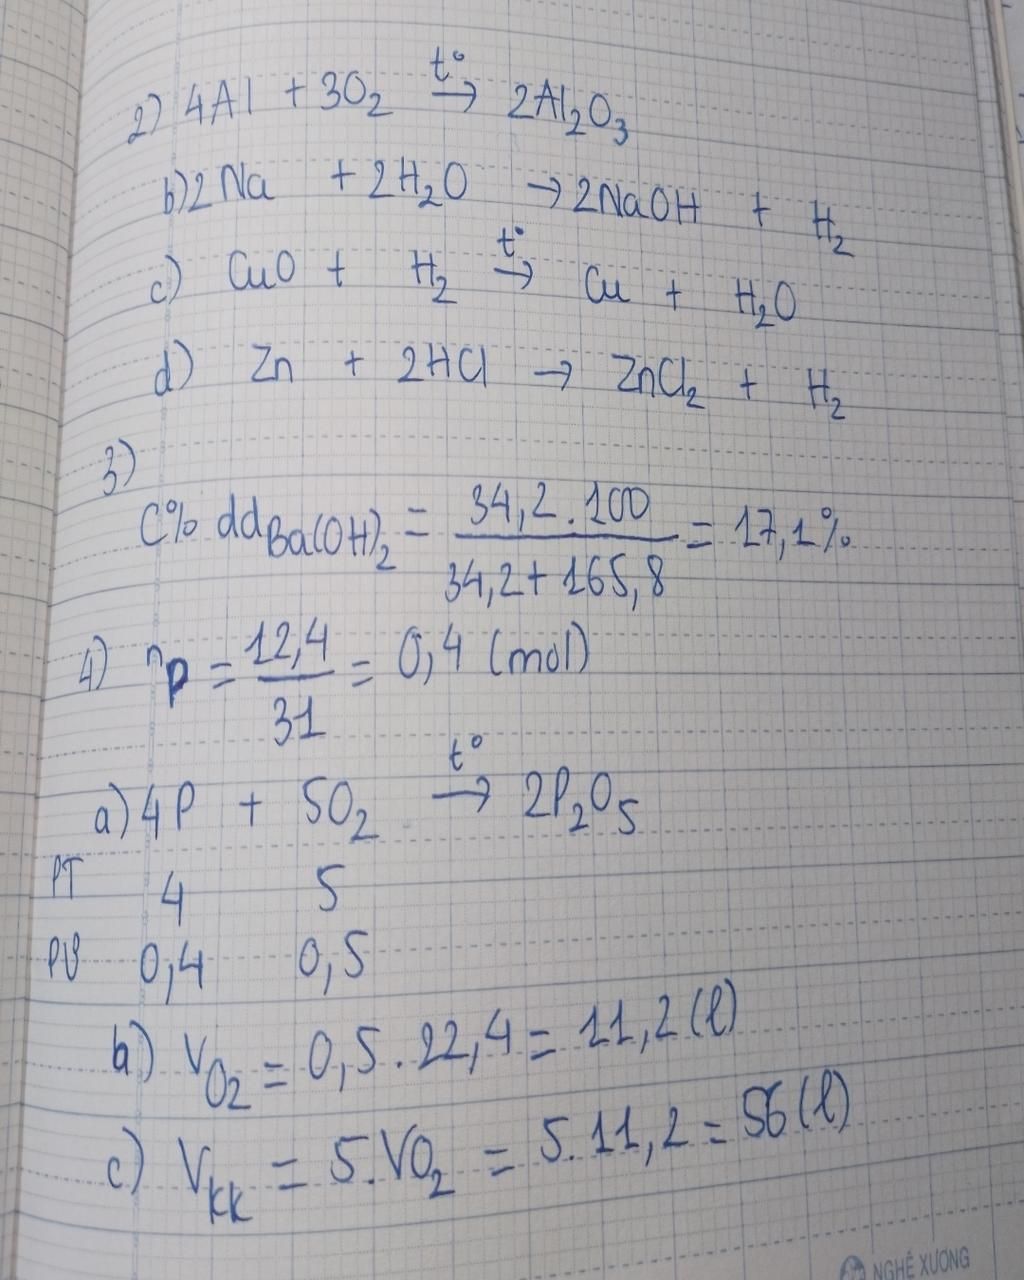 2) 4Al + 3O₂ t°→ 2Al₂O₃
b) 2Na + 2H₂O → 2NaOH + H₂
c) CuO + H₂ t°→ Cu + H₂O
d) Zn + 2HCl → ZnCl₂ + H₂
3)
C% dd Ba(OH)₂ = 34,2.100 / 34,2 + 165,8 = 17,1%
4) nP = 12,4 / 31 = 0,4 (mol)
a) 4P + 5O₂ t°→ 2P₂O₅
PT 4 5
PU 0,4 0,5
b) VO₂ = 0,5.22,4 = 11,2 (l)
c) Vkk = 5.VO₂ = 5.11,2 = 56 (l)
NGHÊ XƯƠNG